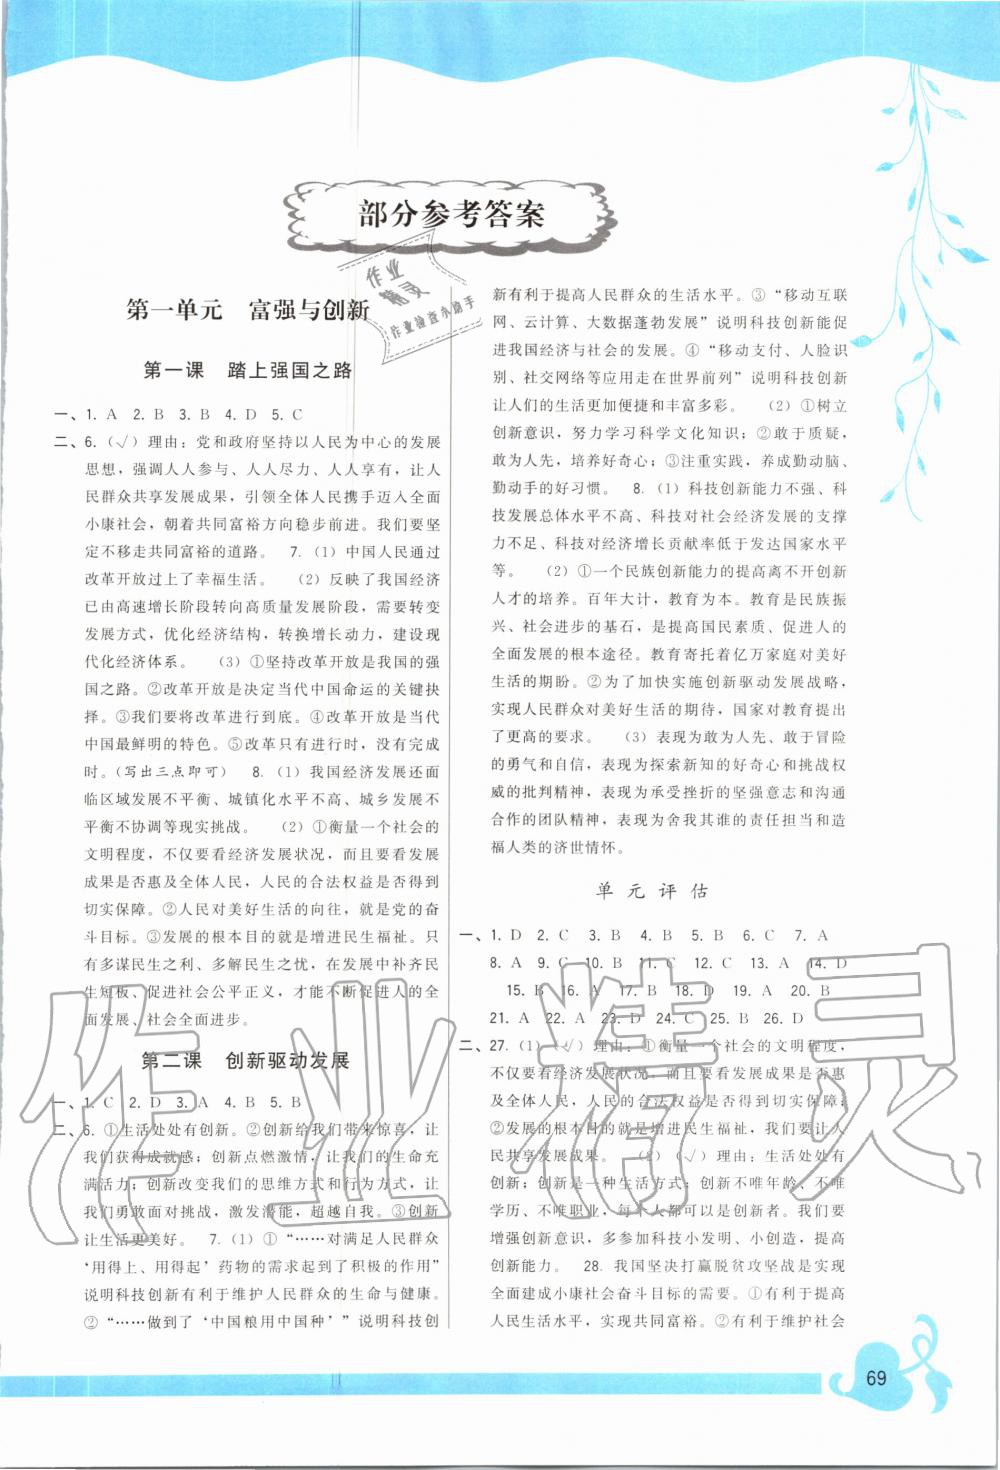 部分参考答案
作业
精灵
作业检查小助手
第一单元 富强与创新
第一课 踏上强国之路
一、1. A 2. B 3. B 4. D 5. C
二、6.（√）理由：党和政府坚持以人民为中心的发展
思想，强调人人参与、人人尽力、人人享有，让人
民群众共享发展成果，引领全体人民携手迈入全面
小康社会，朝着共同富裕方向稳步前进。我们要坚
定不移走共同富裕的道路。 7.（1）中国人民通过
改革开放过上了幸福生活。 （2）反映了我国经济
已由高速增长阶段转向高质量发展阶段，需要转变
发展方式，优化经济结构，转换增长动力，建设现
代化经济体系。 （3）①坚持改革开放是我国的强
国之路。②改革开放是决定当代中国命运的关键抉
择。③我们要将改革进行到底。④改革开放是当代
中国最鲜明的特色。⑤改革只有进行时，没有完成
时。（写出三点即可） 8.（1）我国经济发展还面
临区域发展不平衡、城镇化水平不高、城乡发展不
平衡不协调等现实挑战。 （2）①衡量一个社会的
文明程度，不仅要看经济发展状况，而且要看发展
成果是否惠及全体人民，人民的合法权益是否得到
切实保障。②人民对美好生活的向往，就是党的奋
斗目标。③发展的根本目的就是增进民生福祉。只
有多谋民生之利、多解民生之忧，在发展中补齐民
生短板、促进社会公平正义，才能不断促进人的全
面发展、社会全面进步。
第二课 创新驱动发展
一、1. C 2. D 3. A 4. B 5. B
二、6. ①生活处处有创新。②创新给我们带来惊喜，让
我们获得成就感；创新点燃激情，让我们的生命充
满活力；创新改变我们的思维方式和行为方式，让
我们勇敢面对挑战，激发潜能，超越自我。③创新
让生活更美好。 7.（1）①“……对满足人民群众
‘用得上、用得起’药物的需求起到了积极的作用”
说明科技创新有利于维护人民群众的生命与健康。
②“……做到了‘中国粮用中国种’”说明科技创
新有利于提高人民群众的生活水平。③“移动互联
网、云计算、大数据蓬勃发展”说明科技创新能促
进我国经济与社会的发展。④“移动支付、人脸识
别、社交网络等应用走在世界前列”说明科技创新
让人们的生活更加便捷和丰富多彩。 （2）①树立
创新意识，努力学习科学文化知识；②敢于质疑，
敢为人先，培养好奇心；③注重实践，养成勤动脑、
勤动手的好习惯。 8.（1）科技创新能力不强、科
技发展总体水平不高、科技对社会经济发展的支撑
力不足、科技对经济增长贡献率低于发达国家水平
等。 （2）①一个民族创新能力的提高离不开创新
人才的培养。百年大计，教育为本。教育是民族振
兴、社会进步的基石，是提高国民素质、促进人的
全面发展的根本途径。教育寄托着亿万家庭对美好
生活的期盼。②为了加快实施创新驱动发展战略，
实现人民群众对美好生活的期待，国家对教育提出
了更高的要求。 （3）表现为敢为人先、敢于冒险
的勇气和自信，表现为探索新知的好奇心和挑战权
威的批判精神，表现为承受挫折的坚强意志和沟通
合作的团队精神，表现为舍我其谁的责任担当和造
福人类的济世情怀。
单元评估
一、1. D 2. C 3. B 4. B 5. B 6. C 7. A
8. A 9. C 10. B 11. C 12. C 13. A 14. D
15. B 16. A 17. B 18. D 19. A 20. B
21. A 22. A 23. D 24. C 25. B 26. D
二、27.（1）（√）理由：①衡量一个社会的文明程度，
不仅要看经济发展状况，而且要看发展成果是否惠
及全体人民，人民的合法权益是否得到切实保障。
②发展的根本目的就是增进民生福祉，我们要让人
民共享发展成果。 （2）（√）理由：生活处处有
创新；创新是一种生活方式；创新不唯年龄、不唯
学历、不唯职业，每个人都可以是创新者。我们要
增强创新意识，多参加科技小发明、小创造，提高
创新能力。 28. 我国坚决打赢脱贫攻坚战是实现
全面建成小康社会奋斗目标的需要。①有利于提高
人民生活水平，实现共同富裕。②有利于维护社会
作业精灵
69